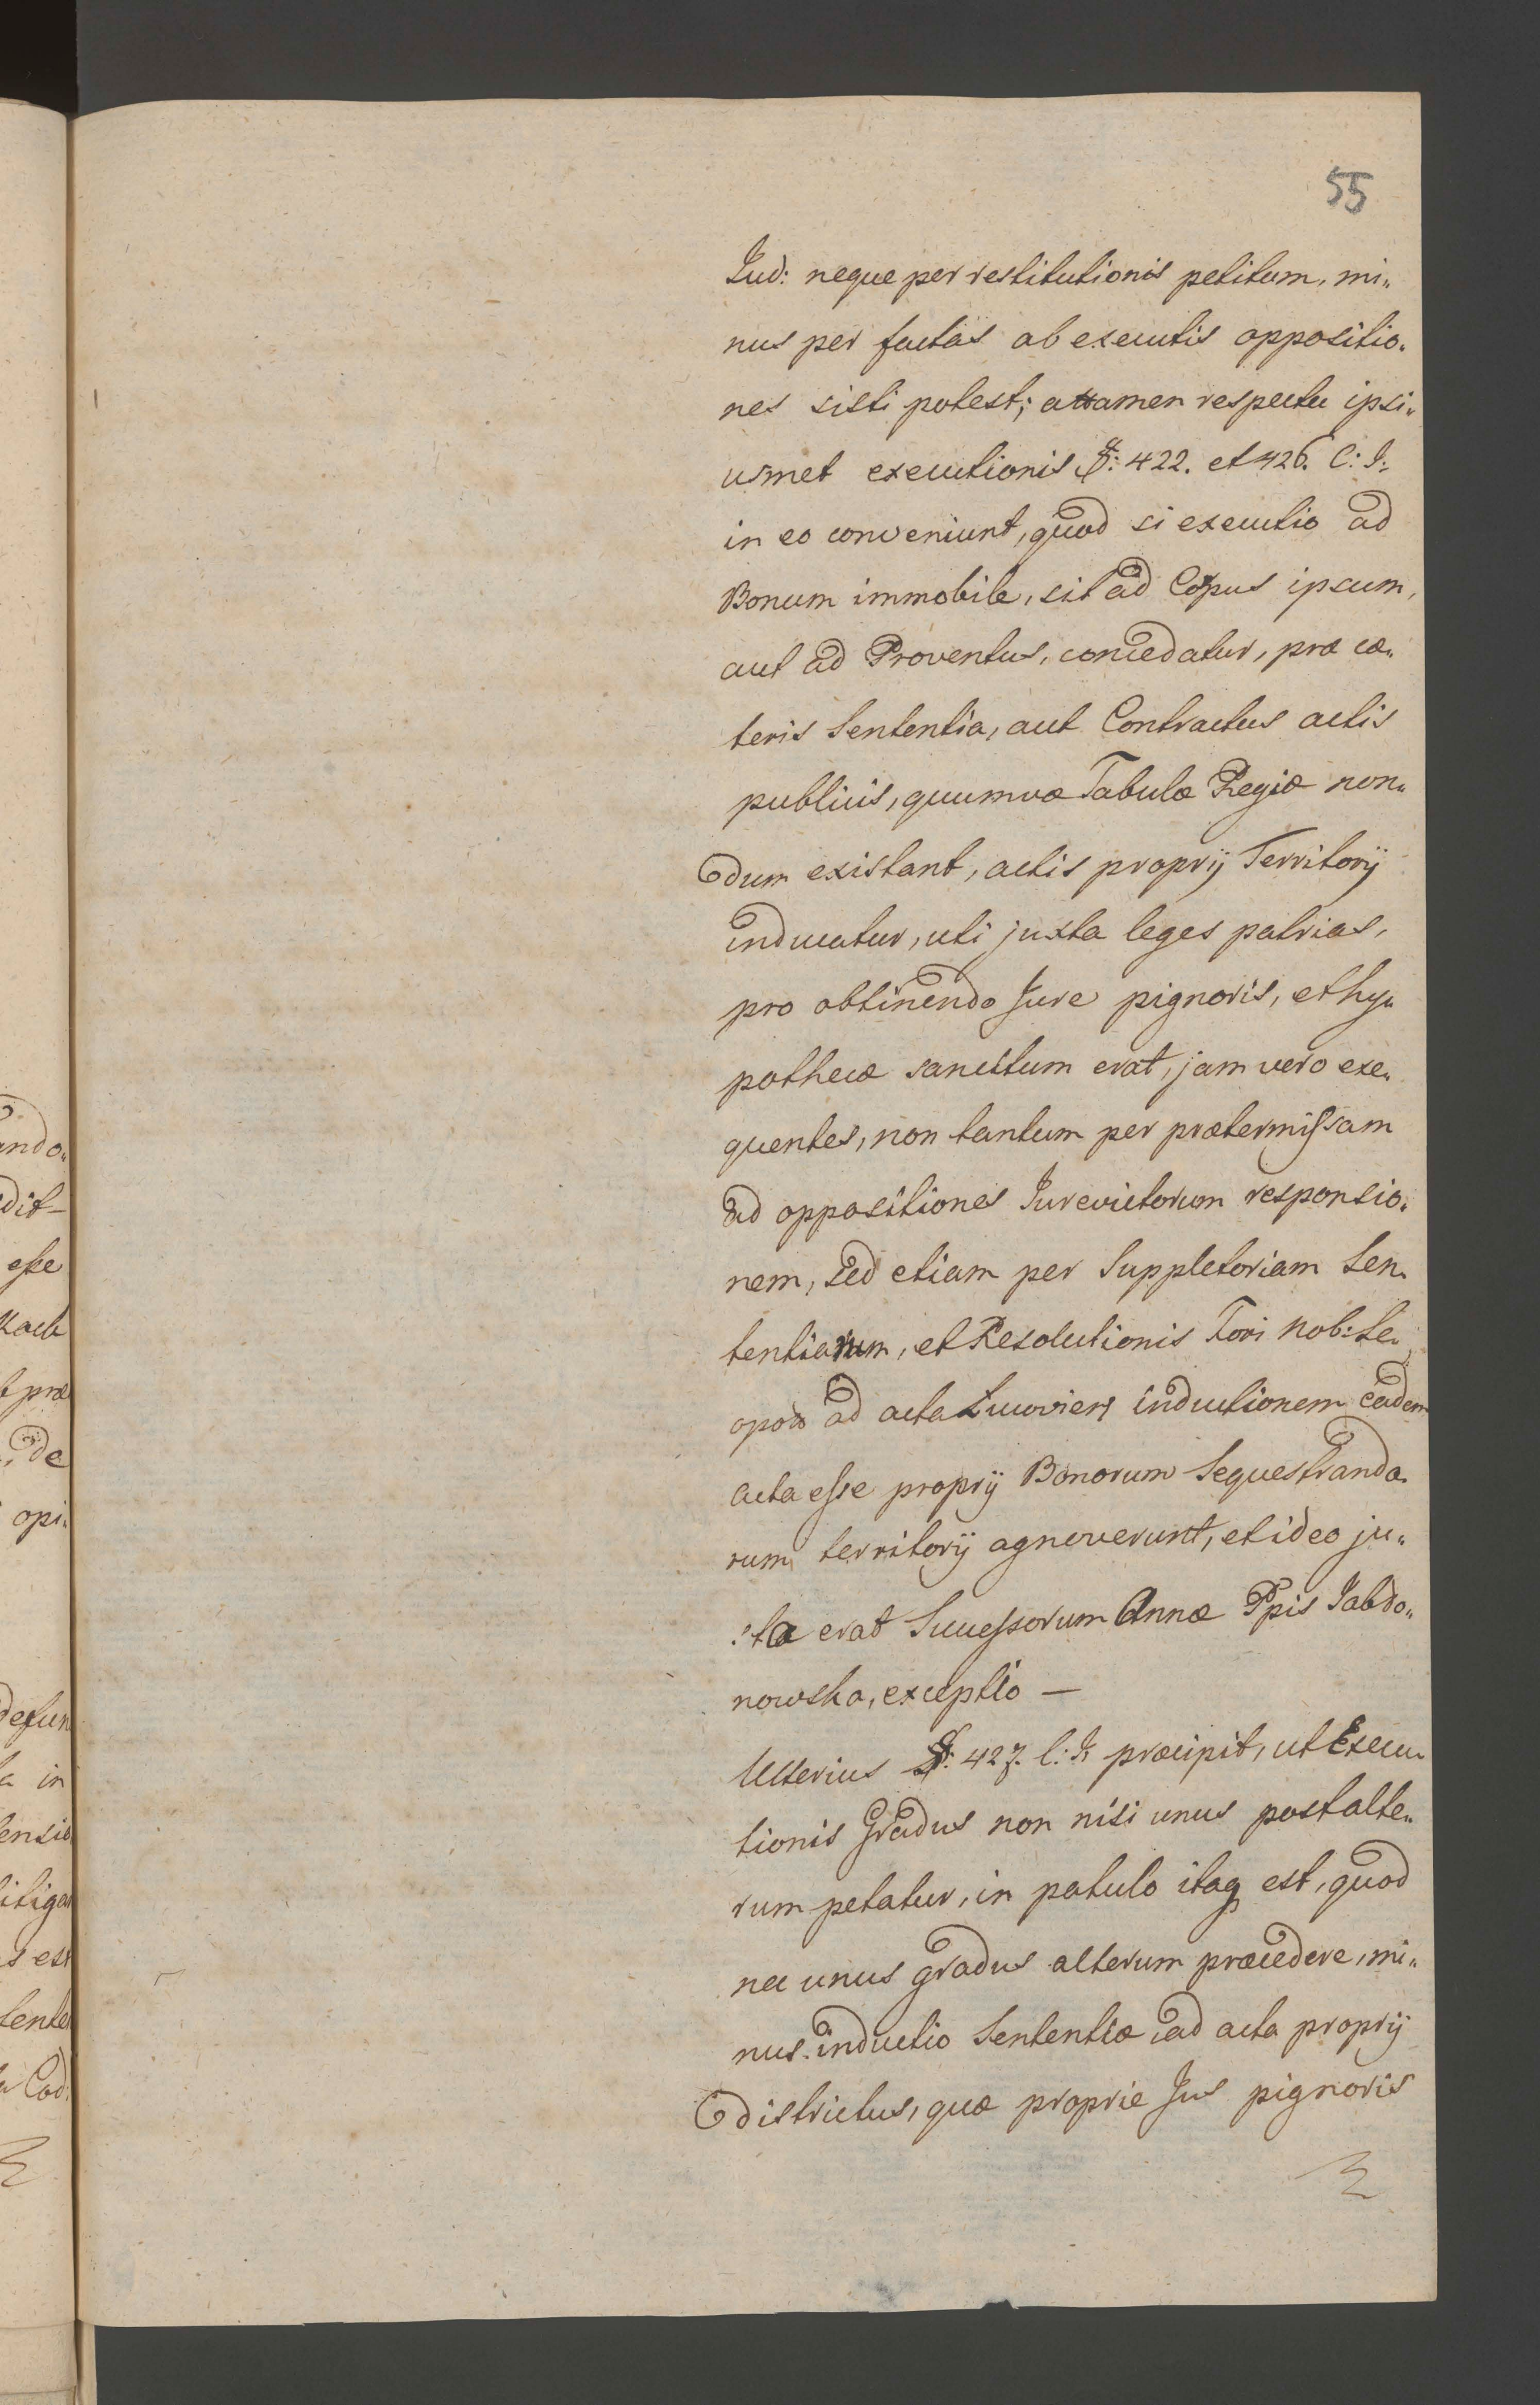 55
Jud: neque per restitutionis petitum, mi„
nus per factas ab executis oppositio„
nes sisti potest; attamen respectu ipsi„
usmet executionis §: 422. et 426. C: J:
in eo conveniunt, quod si executio ad
Bonum immobile, sit ad Corpus ipsum,
aut ad Proventus, concedatur, præ cæ„
teris Sententia, aut Contractus actis
publicis, quumvæ Tabulæ Regiæ non„
dum existant, actis proprij Territorij
inducatur, uti juxta leges patrias,
pro obtinendo Jure pignoris, et hy„
pothecæ sancitum erat, jam vero exe„
quentes, non tantum per prætermissam
ad oppositiones Jurevictorum responsio„
nem, sed etiam per Suppletoriam Sen„
tentiarum, et Resolutionis Fori Nob: Le„
opol: ad acta Zucoviens inductionem eadem
acta esse proprij Bonorum Sequestrando„
rum territorij agnoverunt, et ideo ju„
sta erat Successorum Annæ Ppis Jabło„
nowska, exceptio —
Ulterius §: 427. C: J: præcipit, ut Execu„
tionis Gradus non nisi unus post alte„
rum petatur, in patulo itaq est, quod
nec unus gradus alterum præcedere, mi„
nus inductio Sententiæ ad acta proprij
districtus, quæ proprie Jus pignoris
ando„
dit–
esse
t præ
, de
opi„
defun
a in
ensio
itiga
s est
tente
a Cod: